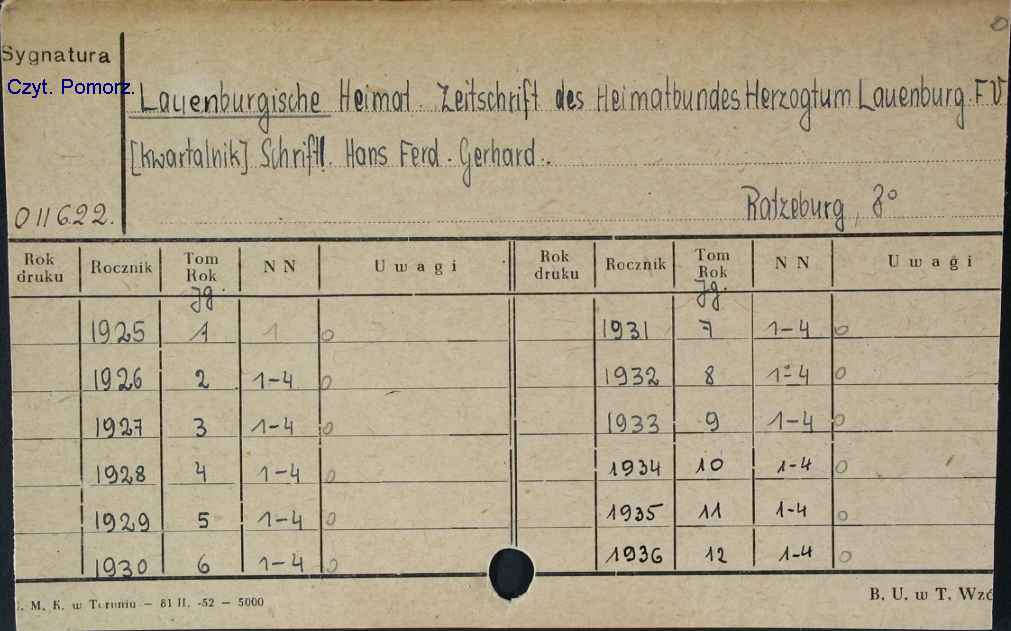 Sygnatura
Czyt. Pomorz.
Lauenburgische Heimat. Zeitschrift des Heimatbundes Herzogtum Lauenburg. F V
[kwartalnik] Schriftl. Hans Ferd. Gerhard.
011622.
Ratzeburg, 8°
Rok druku Rocznik Tom Rok NN Uwagi Rok druku Rocznik Tom Rok NN Uwagi
Jg. Jg.
1925 1 1 0 1931 7 1-4 0
1926 2 1-4 0 1932 8 1-4 0
1927 3 1-4 0 1933 9 1-4 0
1928 4 1-4 0 1934 10 1-4 0
1929 5 1-4 0 1935 11 1-4 0
1930 6 1-4 0 1936 12 1-4 0
. M. K. w Toruniu — 81 II. -52 — 5000
B. U. w T. Wzó